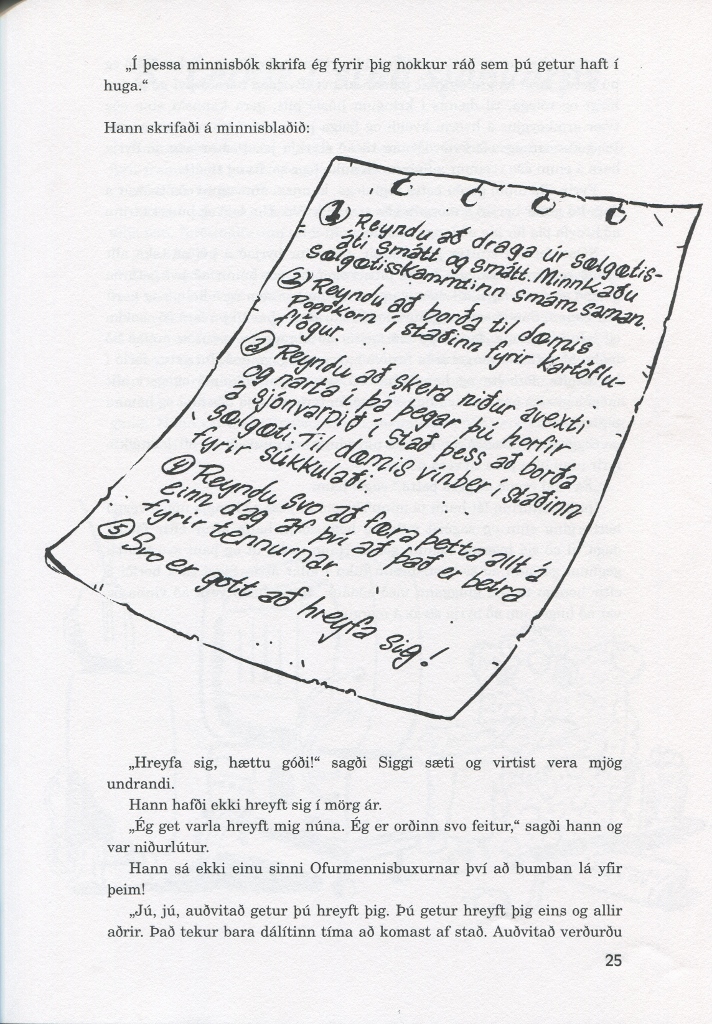 „Í þessa minnisbók skrifa ég fyrir þig nokkur ráð sem þú getur haft í
huga.“
Hann skrifaði á minnisblaðið:
1 Reyndu að draga úr sælgætis-
áti smátt og smátt. Minnkaðu
sælgætisskammtinn smám saman.
2 Reyndu að borða til dæmis
Poppkorn í staðinn fyrir kartöflu-
flögur.
3 Reyndu að skera niður ávexti
og narta í þá þegar þú horfir
á sjónvarpið í stað þess að borða
sælgæti. Til dæmis vínber í staðinn
fyrir súkkulaði.
4 Reyndu svo að færa þetta allt á
einn dag af því að það er betra
fyrir tennurnar.
5 Svo er gott að hreyfa sig!
„Hreyfa sig, hættu góði!“ sagði Siggi sæti og virtist vera mjög
undrandi.
Hann hafði ekki hreyft sig í mörg ár.
„Ég get varla hreyft mig núna. Ég er orðinn svo feitur,“ sagði hann og
var niðurlútur.
Hann sá ekki einu sinni Ofurmennisbuxurnar því að bumban lá yfir
þeim!
„Jú, jú, auðvitað getur þú hreyft þig. Þú getur hreyft þig eins og allir
aðrir. Það tekur bara dálítinn tíma að komast af stað. Auðvitað verðurðu
25